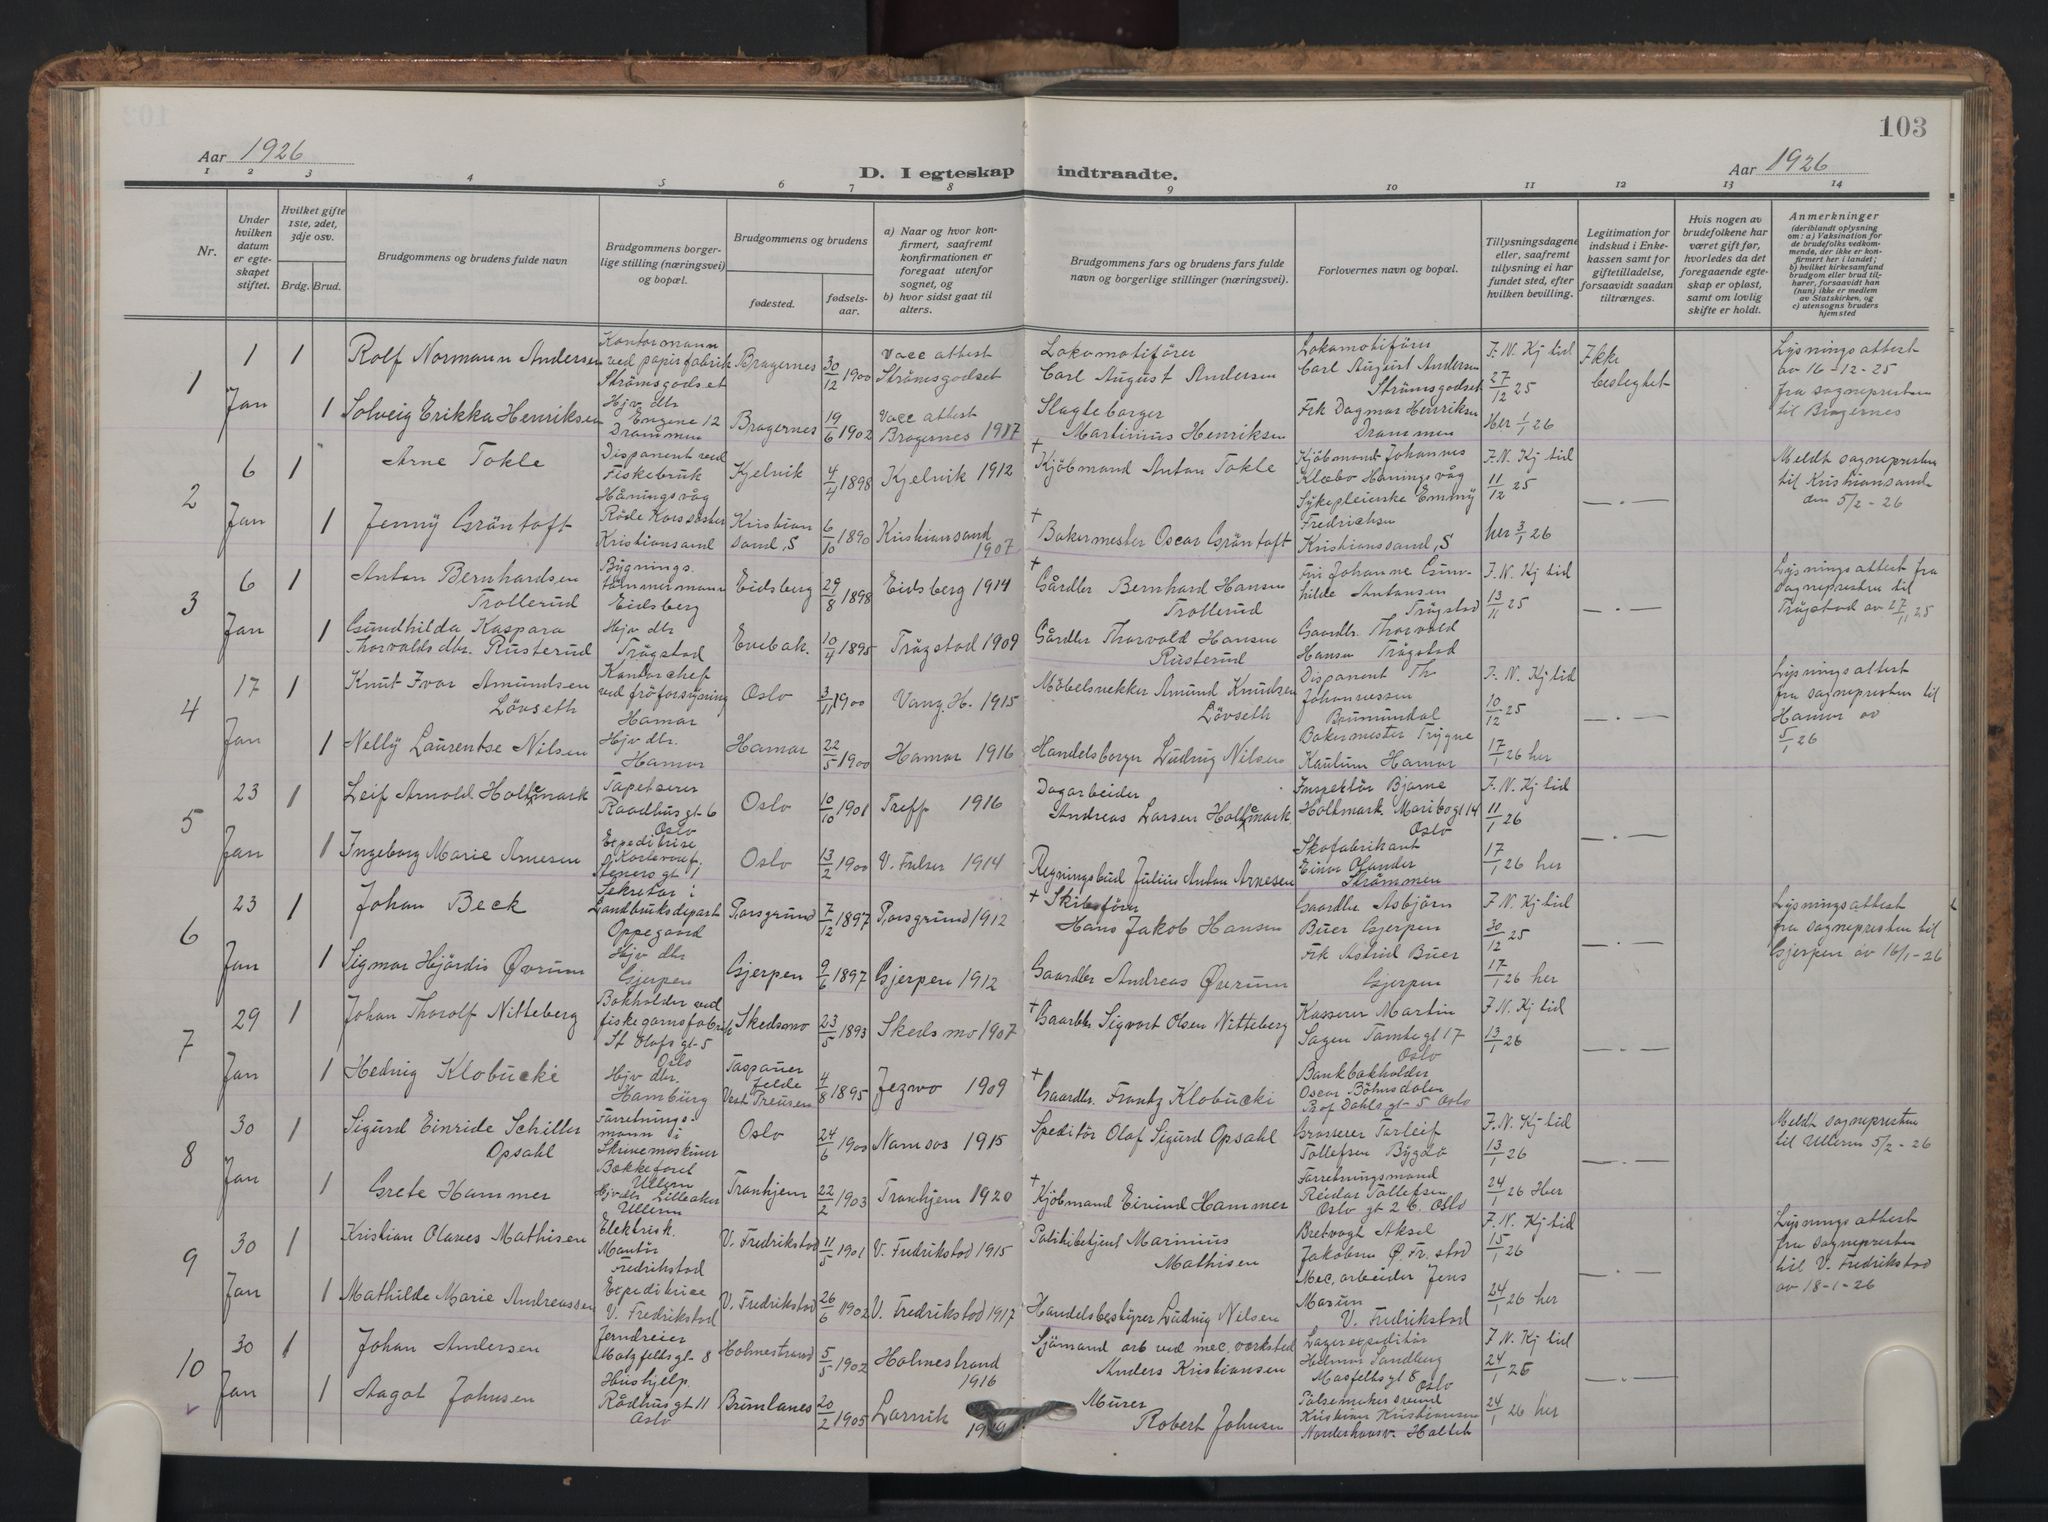 103
Aar 1926
D. I egteskap indtraadte.
Aar 1926
1 2 3 4 5 6 7 8 9 10 11 12 13 14
Nr.
Under hvilken datum er egteskapet stiftet.
Hvilket gifte 1ste, 2det, 3dje osv.
Brdg. Brud.
Brudgommens og brudens fulde navn
Brudgommens borgerlige stilling (næringsvei) og bopæl.
Brudgommens og brudens
fødested.
fødselsaar.
a) Naar og hvor konfirmert, saafremt konfirmationen er foregaat utenfor sognet, og
b) hvor sidst gaat til alters.
Brudgommens fars og brudens fars fulde navn og borgerlige stillinger (næringsvei).
Forlovernes navn og bopæl.
Tillysningsdagene eller, saafremt tillysning ei har fundet sted, efter hvilken bevilling.
Legitimation for indskud i Enkekassen samt for giftetilladelse, forsaavidt saadan tiltrænges.
Hvis nogen av brudefolkene har været gift før, hvorledes da det foregaaende egteskap er opløst, samt om lovlig skifte er holdt.
Anmerkninger (deriblandt oplysning om: a) Vaksination for de brudefolks vedkommende, der ikke er konfirmert her i landet; b) hvilket kirkesamfund brudgom eller brud tilhører, forsaavidt han (hun) ikke er medlem av Statskirken, og c) utensogns bruders hjemsted
1 1 Jan 1 Rolf Normann Andersen Kontormann ved papirfabrik Strömsgodset Bragernes 30/12 1900 Vacc attest Strömsgodset Lokomotivförer Carl August Andersen Lokomotivförer Carl August Andersen Strömsgodset F. N. Kj tid 27/12 25 Ikke beslegtet Lysningsattest av 16-12-25 fra sognepresten til Bragernes
1 Solveig Erikka Henriksen Hjv dtr Engene 12 Drammen Bragernes 19/6 1902 Vacc attest Bragernes 1917 Martinius Henriksen Frk Dagmar Henriksen Drammen Her 1/1 26
2 6 Jan 1 Arne Tokle Disponent ved Fiskebruk Håningsvåg Kjelvik 4/4 1898 Kjelvik 1912 + Kjöbmand Anton Tokle Kjöbmand Johannes Klæbo Honingsvåg F. N. Kj tid 11/12 25 —„— Meldt sognepresten til Kristiansand den 5/2-26
1 Jenny Gröntoft Röde Korssöster Kristiansand Kristiansand, S 6/10 1890 Kristiansand 1907 + Bakermester Oscar Gröntoft Sykepleierske Emmy Fredrichsen Kristianssand, S her 3/1 26
3 6 Jan 1 Anton Bernhardsen Trollerud Bygningstömmermann Eidsberg Eidsberg 29/8 1898 Eidsberg 1914 + Gårdbr Bernhard Hansen Trollerud Fru Johanne Gunhilde Antonsen Trögstad F. N. Kj tid 13/11 25 —„— Lysningsattest fra sognepresten til Trögstad av 27/11 25
1 Gundhilda Kaspara Thorvaldsdtr. Rusterud Hjv dtr Trögstad 10/4 1895 Trögstad 1909 Gårdbr Thorvald Hansen Rusterud Gaardbr. Thorvald Hansen Trögstad
4 17 Jan 1 Knut Ivar Amundsen Lövseth Kontorchef ved fröforsyning Hamar Oslo 3/11 1900 Vang. H. 1915 Möbelsnekker Amund Knudsen Lövseth Disponent Th Johannessen Brumundal F. N. Kj tid 10/12 25 —„— Lysningsattest fra sognepresten til Hamar av 5/1 26
1 Nelly Laurentse Nilsen Hjv dtr. Hamar Hamar 22/5 1900 Hamar 1916 Handelsborger Ludvig Nilsen Bakermester Trygve Hamar 17/1 26 her
5 23 Jan 1 Leif Arnold Holtemark Tapetserer Raadhusgt 6 Oslo Oslo 10/10 1901 Treff 1916 Dagarbeider Andreas Larsen Holtemark Inspektör Bjarne Holtmark Maribogt 14 Oslo F. N. Kj tid 11/1 26 —„—
1 Ingeborg Marie Arnesen Expeditrise Stenersgt 1 Oslo 13/2 1900 1914 Regningsbud Julius Anton Arnesen Skofabrikant Einar Olander Strömmen 17/1 26 her
6 23 Jan 1 Johan Beck Sekretær i Landbruksdepart Oppegaard Porsgrund 7/12 1897 Porsgrund 1912 + Skibsförer Hans Jakob Hansen Gaardbr Asbjörn Buer Gjerpen F. N. Kj tid 30/12 25 —„— Lysningsattest fra sognepresten til Gjerpen av 16/1-26
1 Sigmar Hjördis Øvrum Hjv dtr Gjerpen Gjerpen 9/6 1897 Gjerpen 1912 Gaardbr Andreas Øvrum Frk Astrid Buer Gjerpen 17/1 26 her
7 29 Jan 1 Johan Thorolf Nitteberg Bokholder ved fiskegarnsfabrik St Olafsgt 5 Oslo Skedsmo 23/5 1893 Skedsmo 1907 + Gaardbr. Sigvart Olsen Nitteberg Kasserer Martin Sagen Tomtegt 17 Oslo F. N. Kj tid 13/1 26 —„—
1 Hedvig Klobucki Hjv dtr. Hamburg Vest Preusen 4/8 1895 Jezwo 1909 + Gaardbr. Frantz Klobucki Bankbokholder Oscar Böhnsdalen Prof Dahlsgt 5 Oslo
8 30 Jan 1 Sigurd Einride Schiller Opsahl Forretningsmann i Skrivemaskiner Ullern Oslo 24/6 1900 Namsos 1915 Speditör Olaf Sigurd Opsahl Grosserer Torleif Tollefsen Bygdö F. N. Kj tid 13/1 26 —„— Meldt sognepresten til Ullern 5/2-26
1 Grete Hammer Hjv dtr Lilleaker Ullern Tronhjem 22/2 1903 Tronhjem 1920 + Kjöbmand Eivind Hammer Forretningsmand Reidar Tollefsen Oslo gt 26 Oslo 24/1 26 Her
9 30 Jan 1 Kristian Olaves Mathisen Elektrisk. Montör Fredrikstad V. Fredrikstad 11/5 1901 V. Fredrikstad 1915 Politibetjent Marinius Mathisen Aksel Jakobsen Ø Fr. stad F. N. Kj tid 15/1 26 —„— Lysningsattest fra sognepresten til V. Fredrikstad av 18-1-26
1 Mathilde Marie Andreassen Expeditrice V. Fredrikstad V. Fredrikstad 26/6 1902 V. Fredrikstad 1917 Handelsbestyrer Ludvig Nilsen Mec, arbeider Jens V. Fredrikstad 24/1 26 her
10 30 Jan 1 Johan Andersen Jerndreier Motzfeltsgt 8 Holmestrand 5/5 1902 Holmestrand 1916 Sjömand arb ved mec, verksted Anders Kristiansen Lagerexpeditör Hilmar Sandberg Mosfeltsgt 8 Oslo F. N. Kj tid 24/1 26 —„—
1 Aagot Johnsen Hushjelp. Rådhusgt 11 Oslo Brunlanes 20/2 1905 Larvik Murer Robert Johnsen Pölsemakersvend Kristian Kristiansen 24/1 26 her